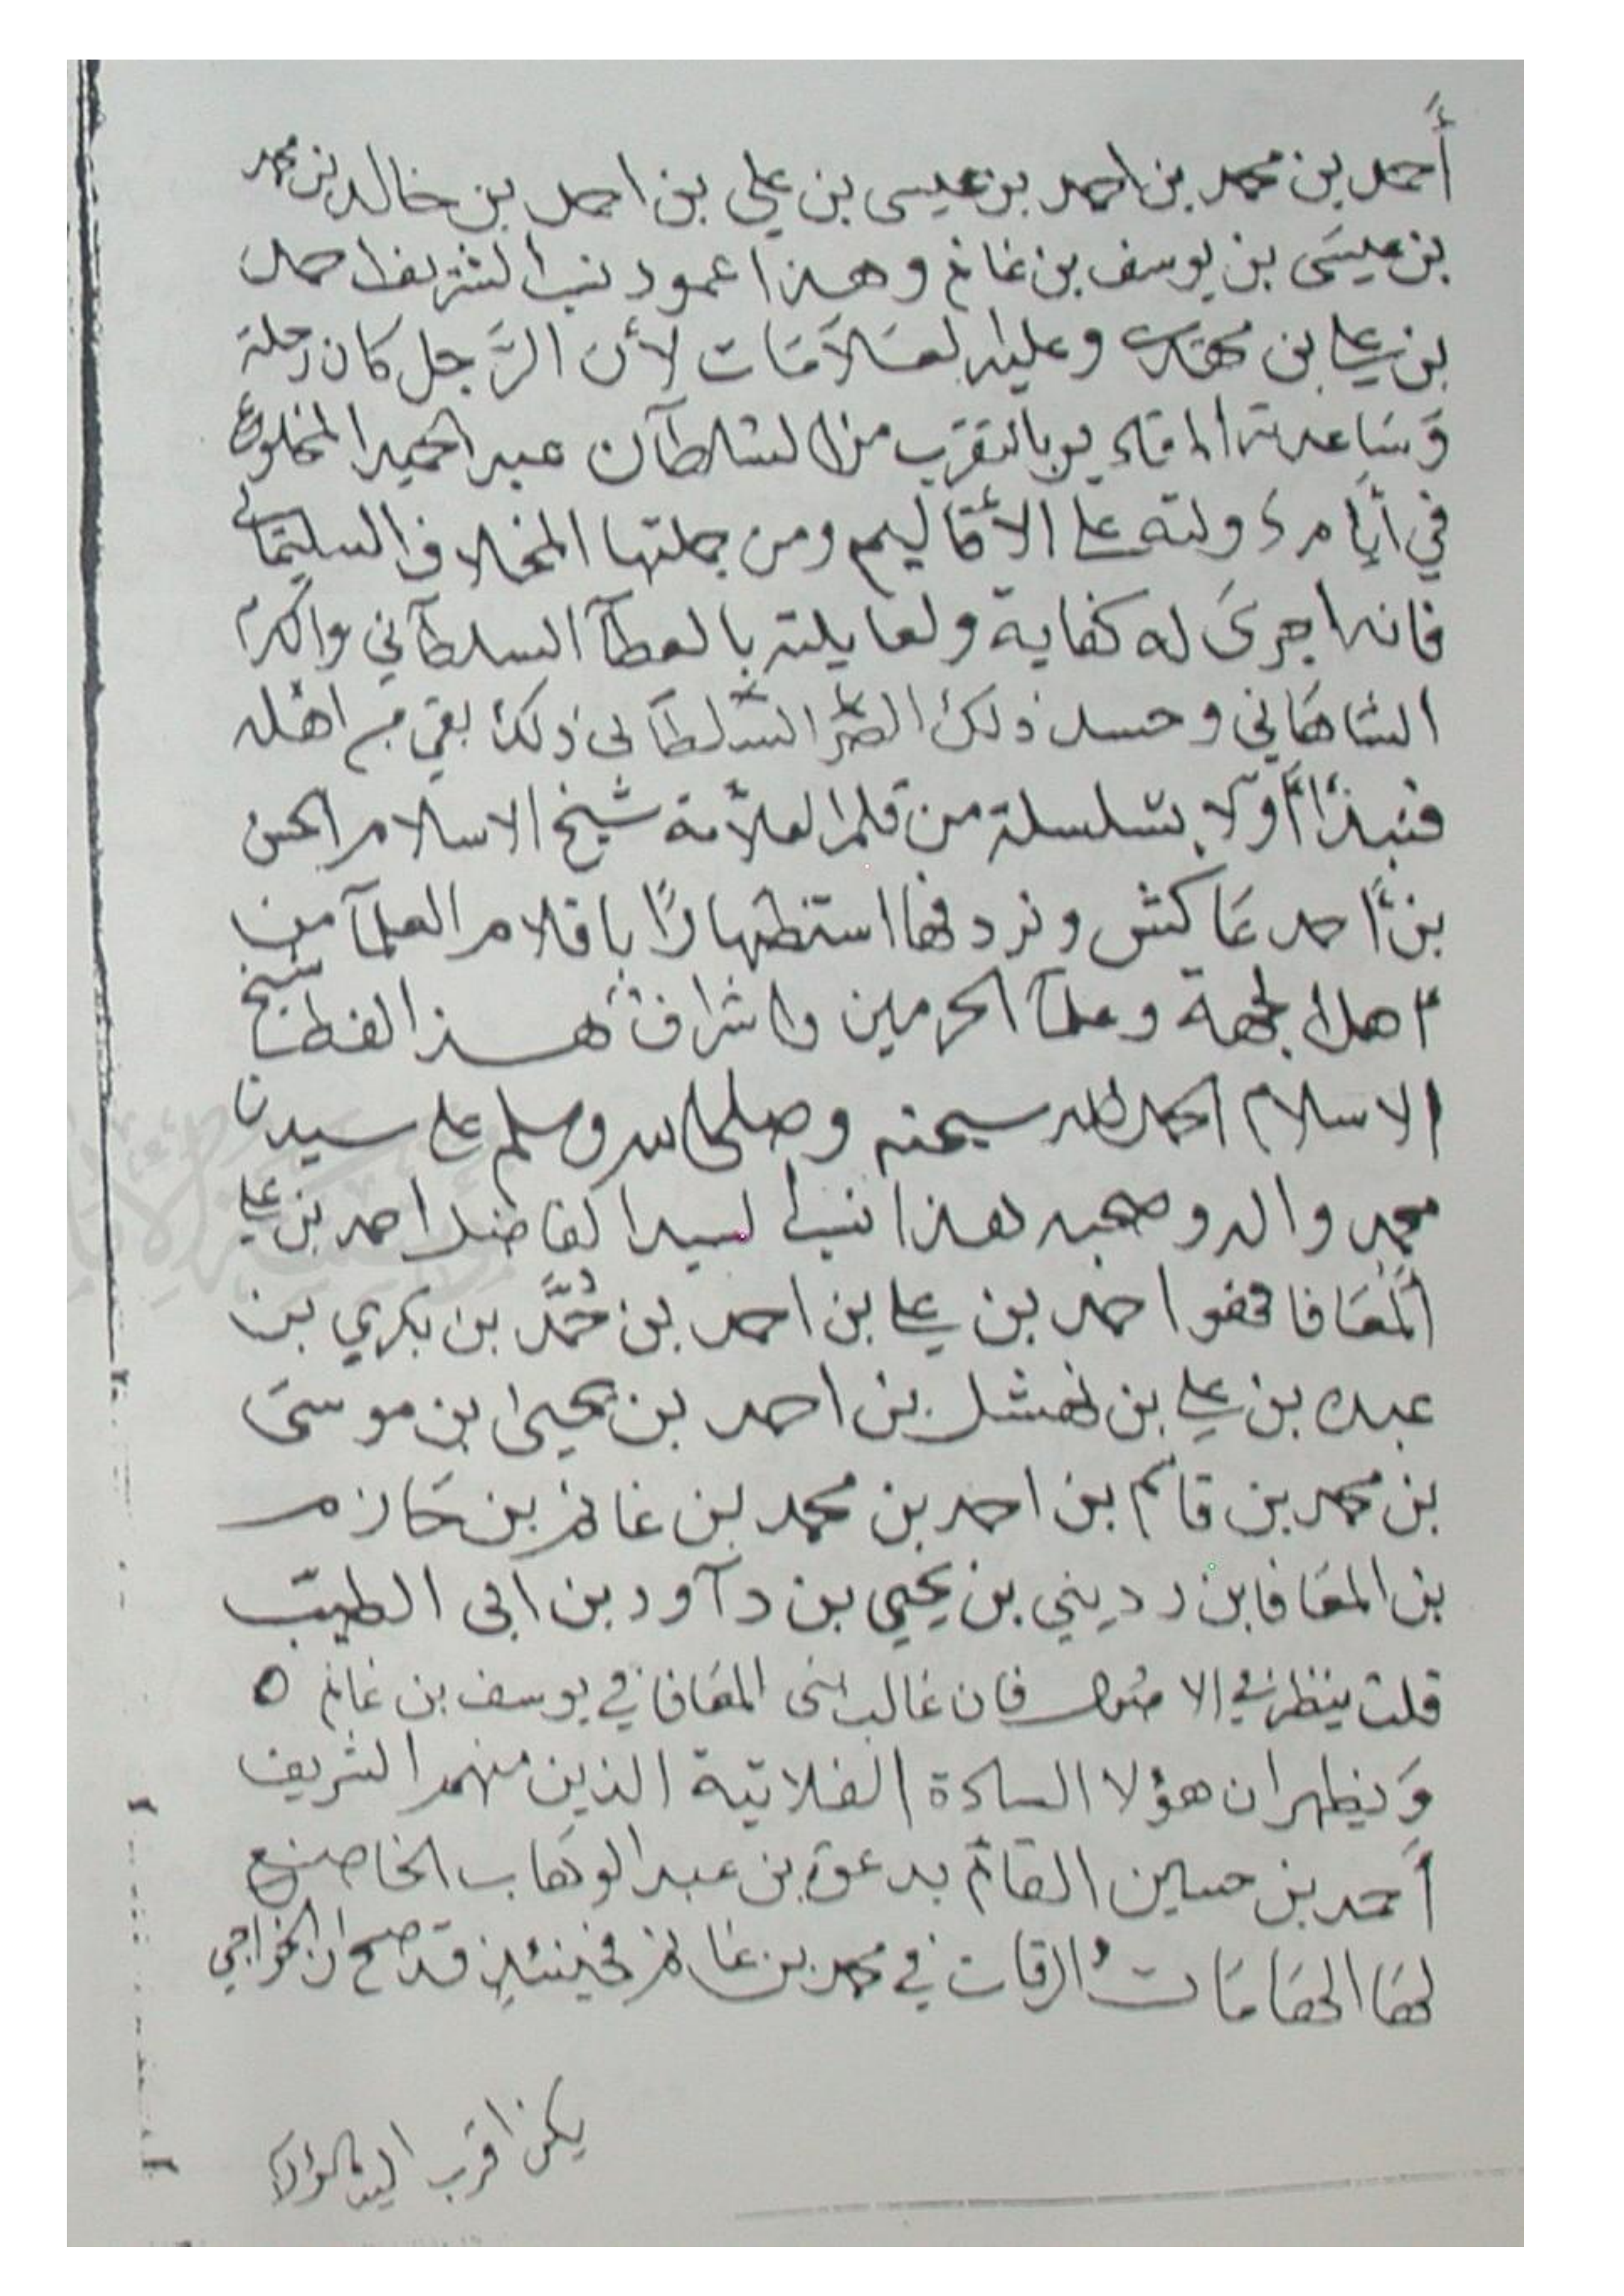 أحمد بن محمد بن احمد بن عيسى بن علي بن احمد بن خالد بن محمد
بن عيسَى بن يوسف بن غانم وهذا عمود نسب الشريف احمد
بن علي بن وعليه العَلاَمَات لأن الرَّجل كان رحلة
وَسَاعدته بالتقرّب من السّلطآن عبد الحميد المخلوع
في أيام دولته على الأقاليم ومن جملتها المخلاف السليمَاني
فانه اجرىَ له كفاية ولعايلته بالعطآ السلطآني واكرم
الشاهَاني وحسد ذلك السّلطَاني ذلك بقي من اهله
فنبدَأ أوّلا بسلسلة من قلم العلاّمة شيخ الاسلام الحسن
بن أحمد عَاكش ونردفها استظهارًا باقلام العلمآ من
اهل الجهة وعلمآ الحرمين واشراف هذا القطر شيخ
الاسلام الحمد لله سبحنه وصلى الله وسلم على سيدنا
محمد واله وصحبه هذا نسب السيد الفاضل احمد بن علي
المعَافا فهو احمد بن علي بن احمد بن حُمَّد بن بكري بن
عبده بن علي بن نهشل بن احمد بن يحيىٰ بن موسىَ
بن محمد بن قاسم بن احمد بن محمد بن غانم بن حَازم
بن المعَافا بن رديني بن يحيي بن دآود بن ابى الطيّب
قلت ينظر في الا فان غالب بنى المعَافا في يوسف بن غانم ٥
وَيظهر ان هؤلا السادة الفلاتية الذين منهم الشريف
أحمد بن حسين القائم بدعوة بن عبد الوهَاب الخاضع
لهَا في محمد بن غانم فحينئذٍ قد صح ان الخواجي
يكن اقرب اليه